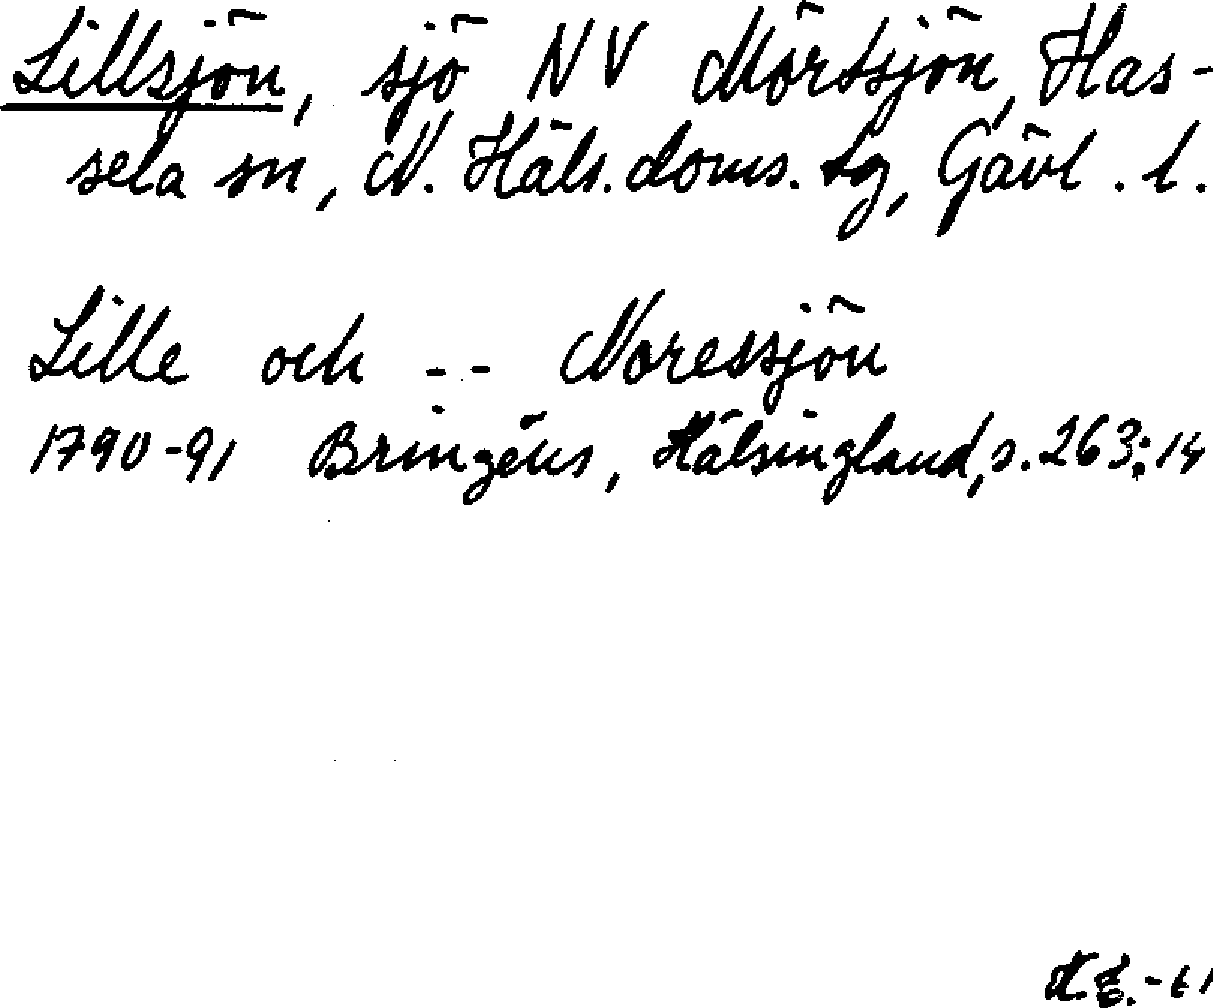 Lillsjön, sjö NV Mörtsjön, Has-
sela sn, N. Häls. doms. tg, Gävl. l.
Lille och -- Noressjön
1790-91 Bringéus, Hälsingland, s. 263:14